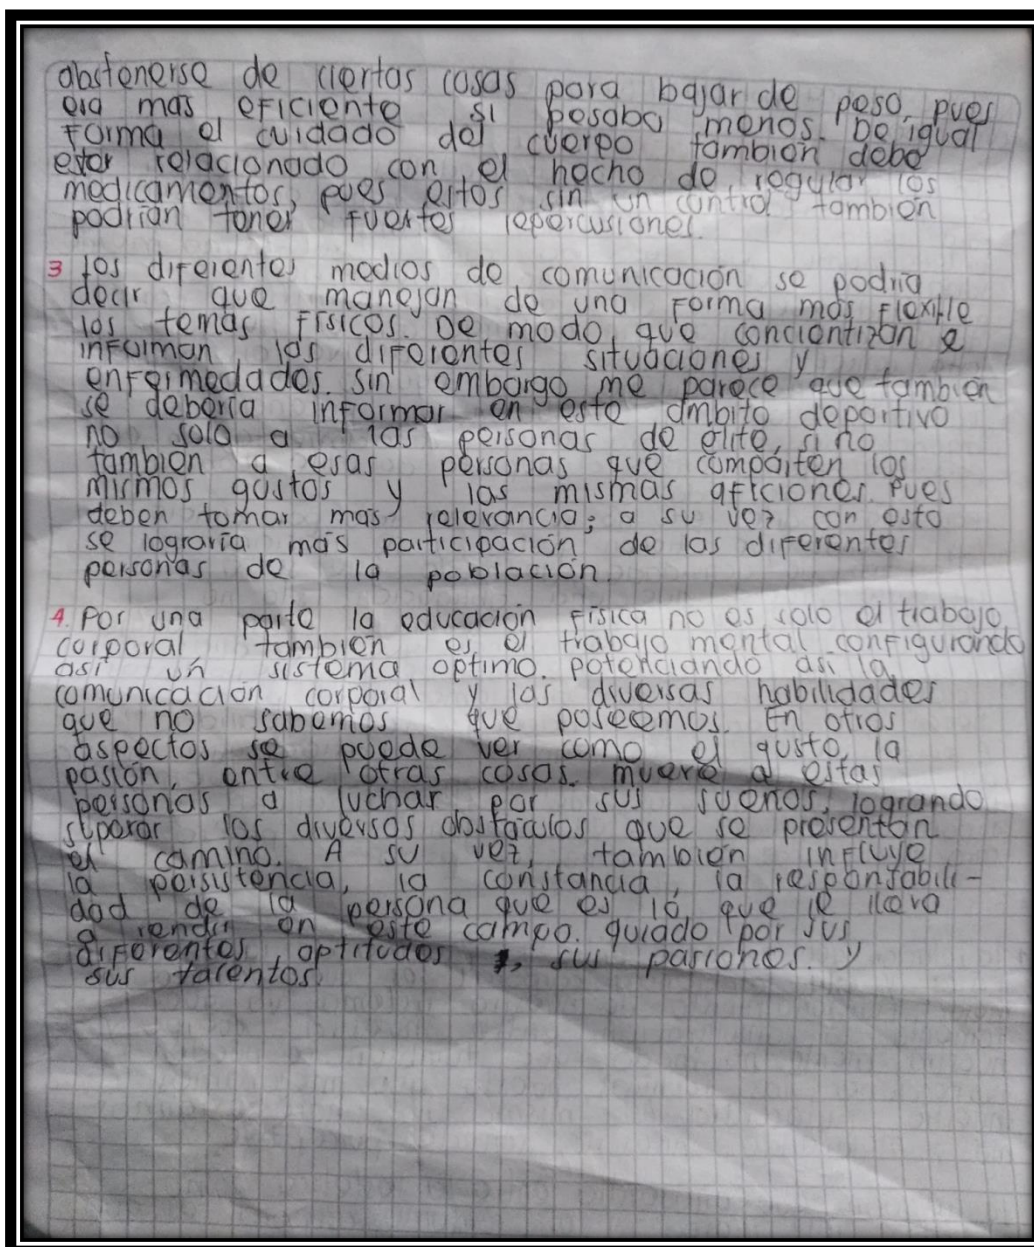 abstenerse de ciertas cosas para bajar de peso, pues
era mas eficiente si pesaba menos. De igual
forma el cuidado del cuerpo tambien debe
estar relacionado con el hecho de regular los
medicamentos, pues estos sin un control tambien
podrian tener fuertes repercusiones.
3 los diferentes medios de comunicación se podria
decir que manejan de una forma mas flexible
los temas Fisicos. De modo que concientizan e
informan las diferentes situaciones y
enfermedades. sin embargo me parece que tambien
se deberia informar en este ámbito deportivo
no solo a las personas de élite, si no
tambien a esas personas que comparten los
mismos gustos y las mismas aficiones. Pues
deben tomar mas relevancia; a su vez con esto
se lograria más participación de las diferentes
personas de la población.
4. Por una parte la educación Fisica no es solo el trabajo
corporal tambien es el trabajo mental. configurando
asi un sistema optimo. potenciando asi la
comunicación corporal y las diversas habilidades
que no sabemos que poseemos. En otros
aspectos se puede ver como el gusto, la
pasión, entre otras cosas. mueve a estas
personas a luchar por sus sueños, logrando
superar los diversos obstáculos que se presentan
el camino. A su vez, tambien influye
la persistencia, la constancia, la responsabili-
dad de la persona que es lo que le lleva
a rendir en este campo. guiado por sus
diferentes aptitudes, sus pasiones. y
sus talentos.